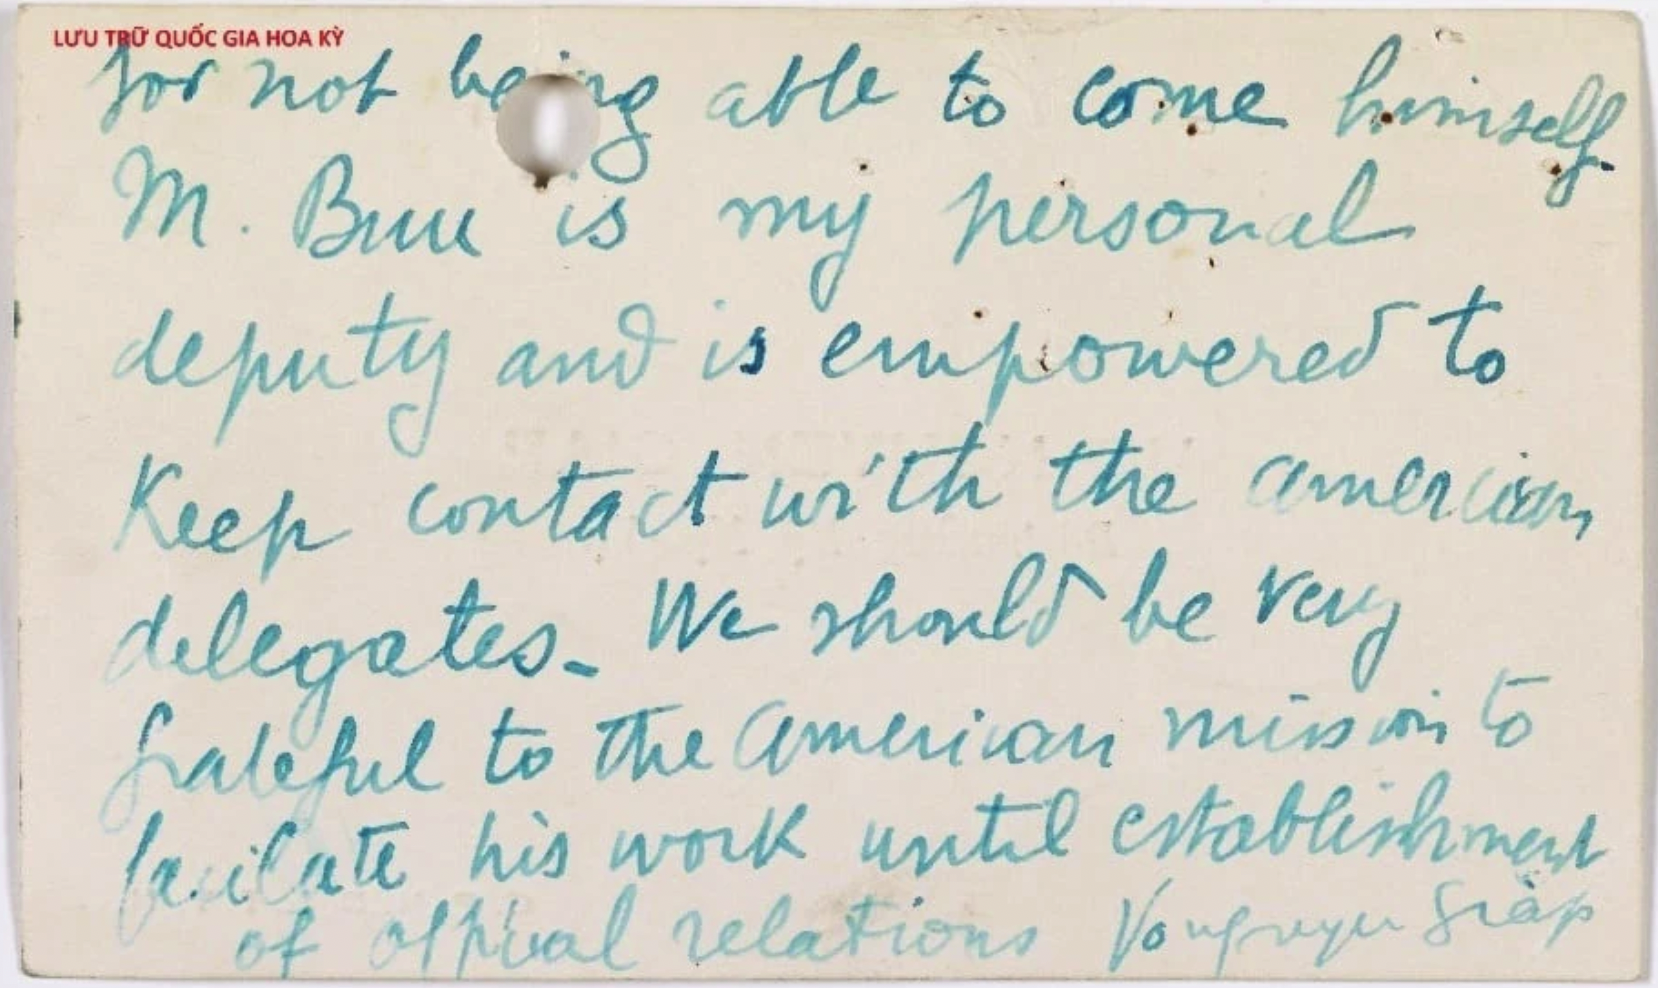 LƯU TRỮ QUỐC GIA HOA KỲ
for not being able to come himself.
M. Buu is my personal
deputy and is empowered to
Keep contact with the american
delegates. We should be very
grateful to the American mission to
facilate his work until establishment
of official relations Vo nguyen Giáp